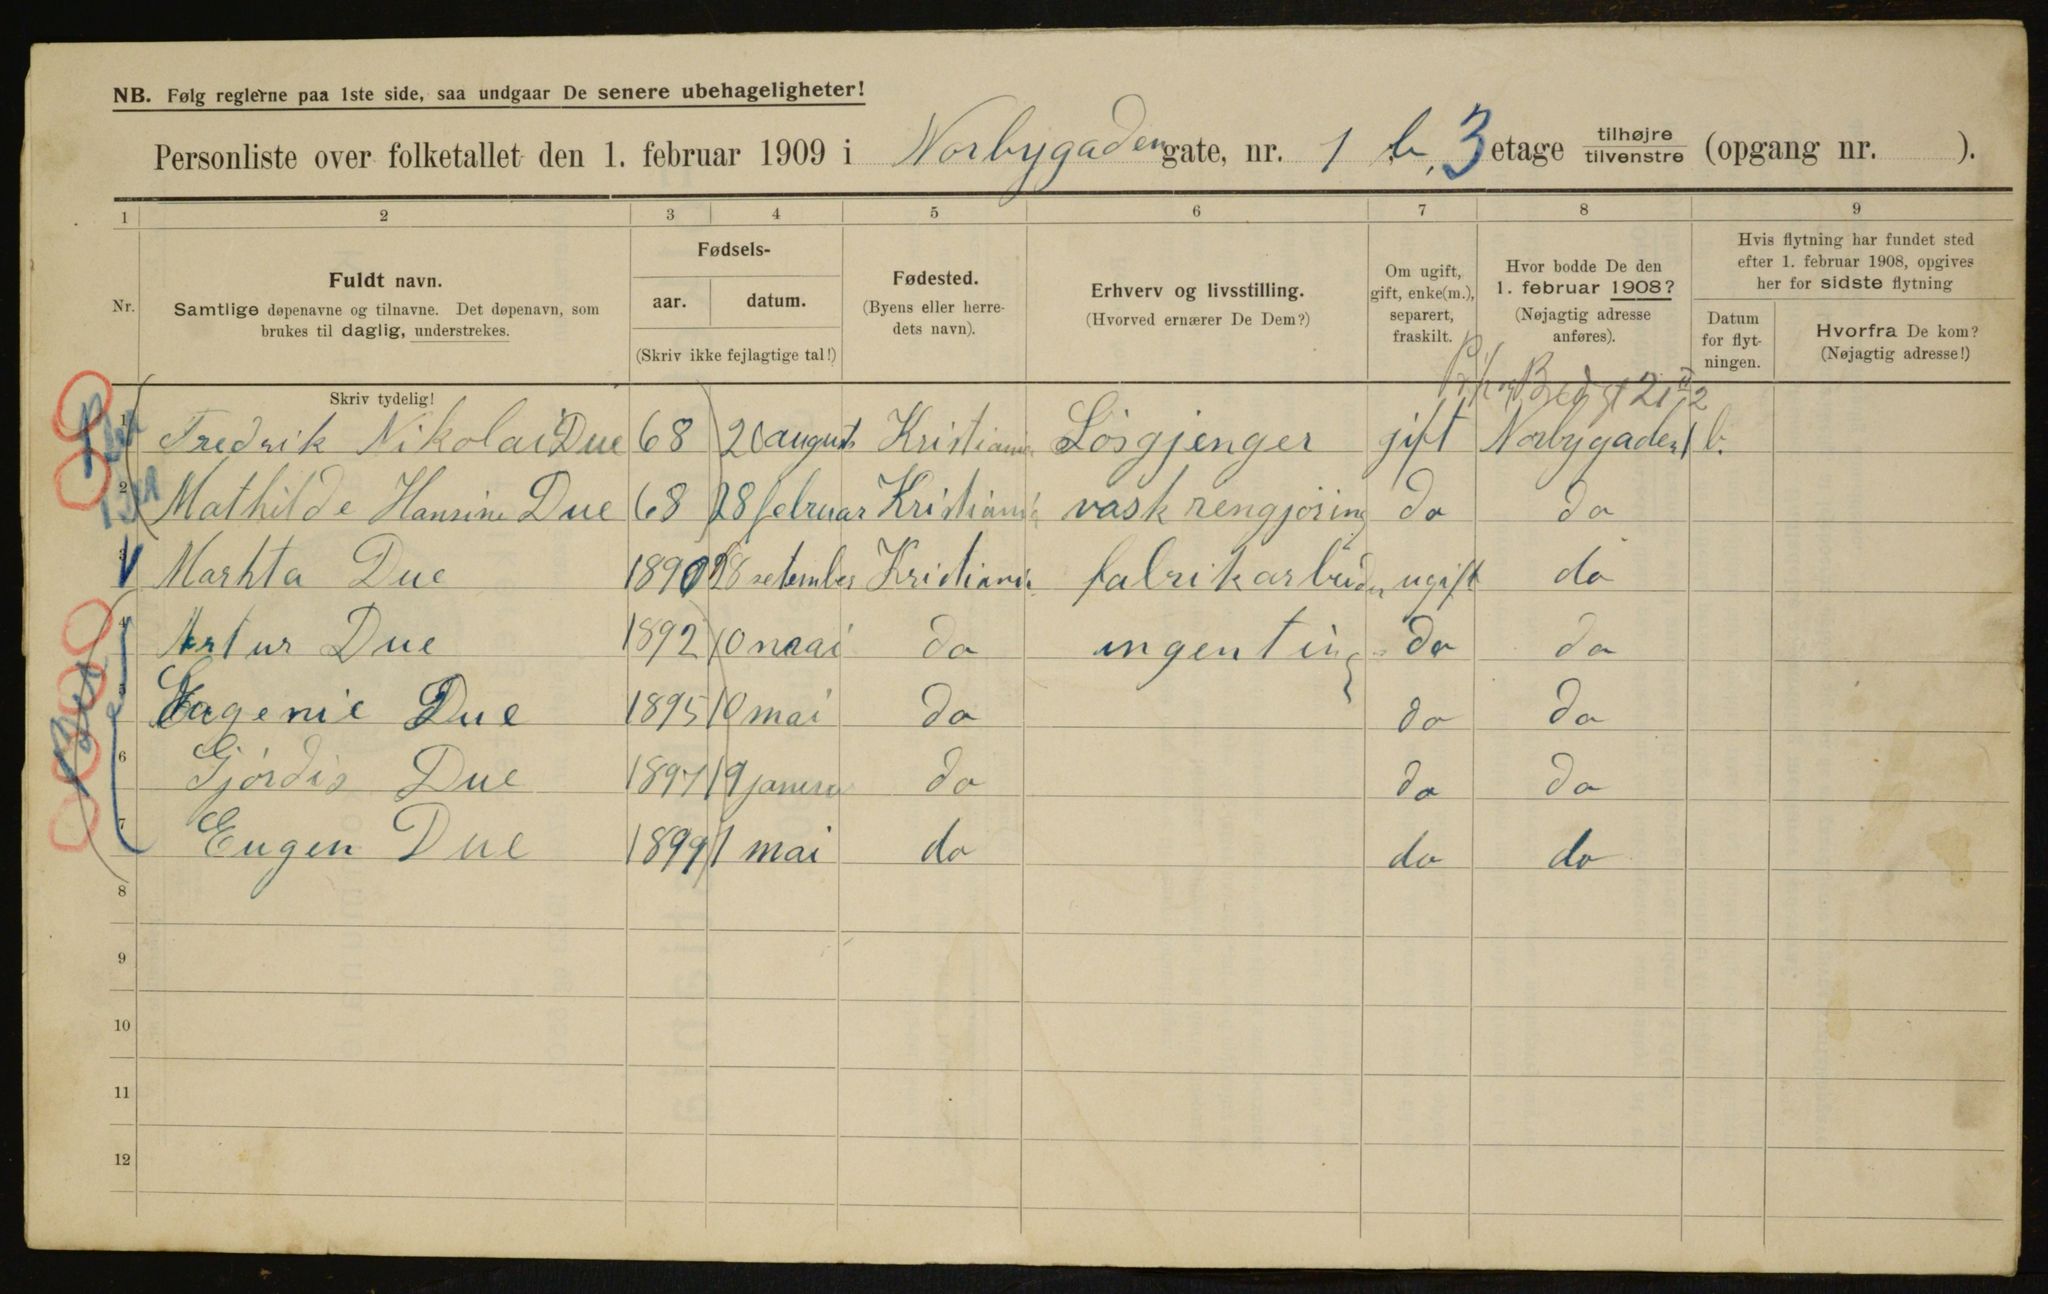 NB. Følg reglerne paa 1ste side, saa undgaar De senere ubehageligheter!
Personliste over folketallet den 1. februar 1909 i Norbygaden gate, nr. 1 b, 3 etage tilhøjre/tilvenstre (opgang nr. ).
1 2 3 4 5 6 7 8 9
Nr.
Fuldt navn.
Samtlige døpenavne og tilnavne. Det døpenavn, som
brukes til daglig, understrekes.
Fødsels-
aar. datum.
(Skriv ikke fejlagtige tal!)
Fødested.
(Byens eller herre-
dets navn).
Erhverv og livsstilling.
(Hvorved ernærer De Dem?)
Om ugift,
gift, enke(m.),
separert,
fraskilt.
Hvor bodde De den
1. februar 1908?
(Nøjagtig adresse
anføres).
Hvis flytning har fundet sted
efter 1. februar 1908, opgives
her for sidste flytning
Datum
for flyt-
ningen.
Hvorfra De kom?
(Nøjagtig adresse!)
Skriv tydelig!
1 Fredrik Nikolai Due 68 20 august Kristiania Løsgjenger gift Norbygaden 1 b.
2 Mathilde Hansine Due 68 28 februar Kristiania vask rengjøring do do
3 Marhta Due 1890 28 setember Kristiania fabrikarbeider ugift do
4 Artur Due 1892 10 mai do ingenting do do
5 Eugenie Due 1895 10 mai do do do
6 Gjørdis Due 1897 19 januar do do do
7 Eugen Due 1899 1 mai do do do
8
9
10
11
12